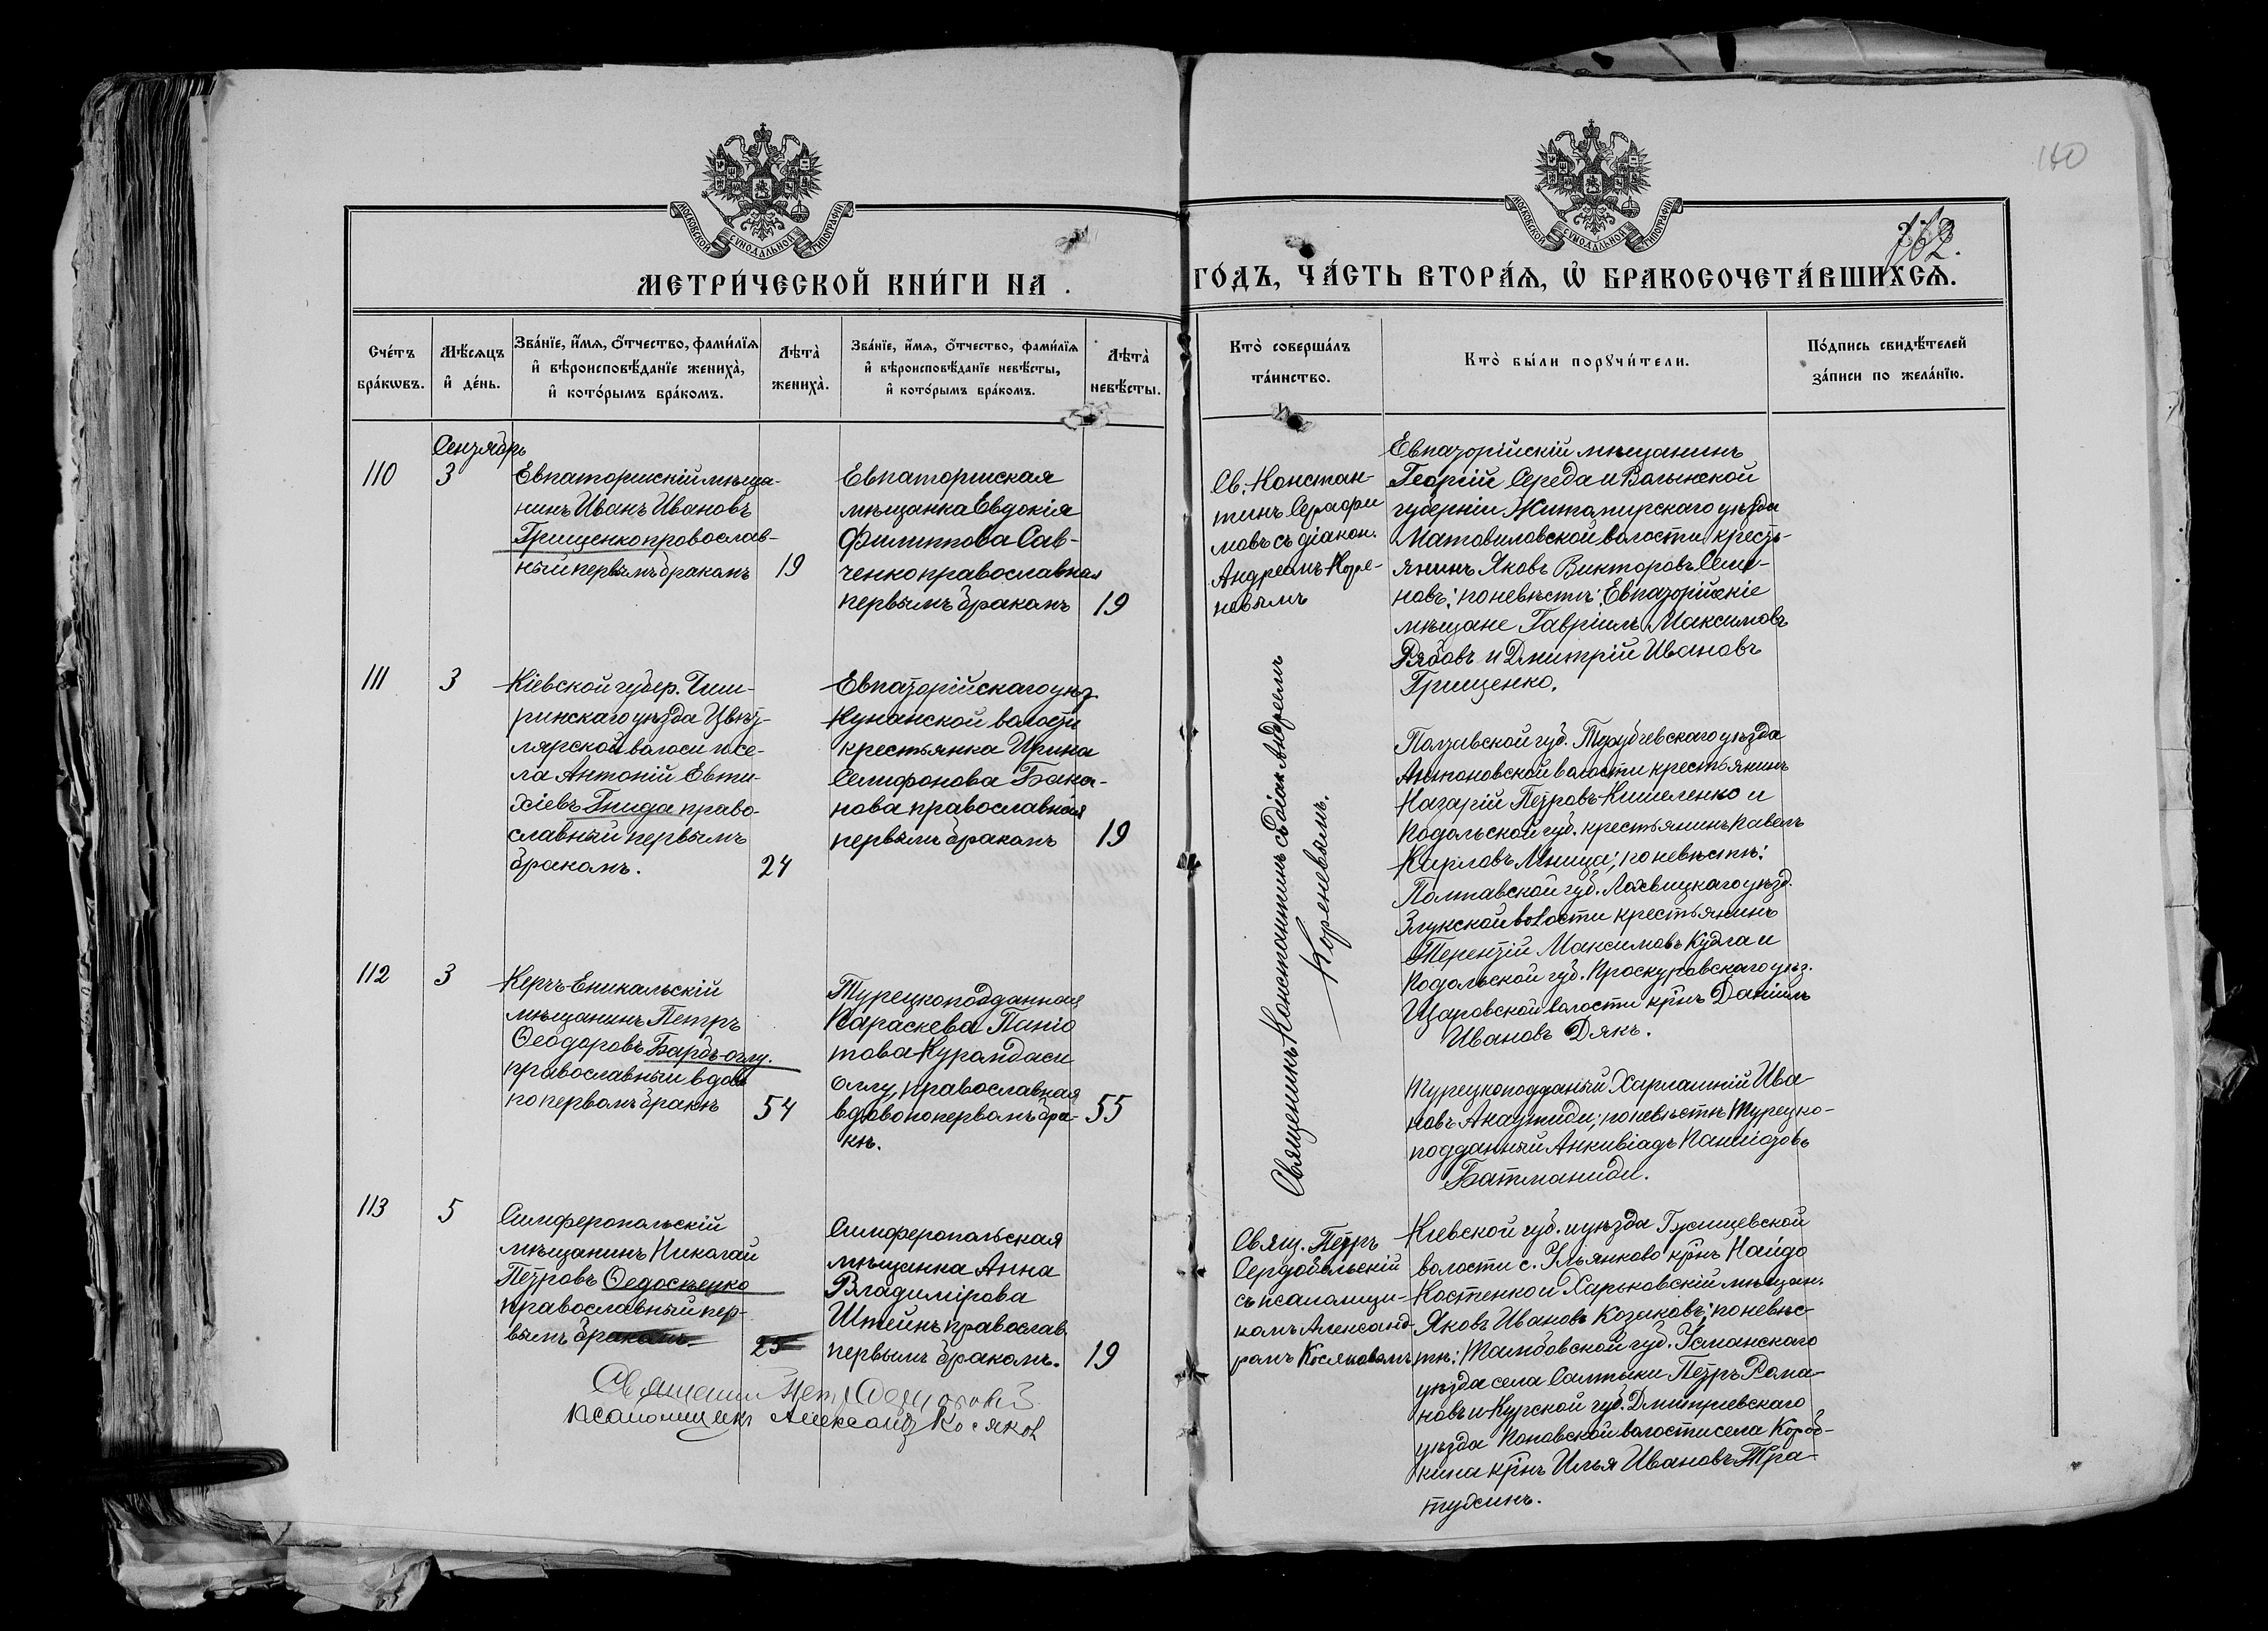 140
762.
МОСКОВСКОЙ СѴНОДАЛЬНОЙ ТИПОГРАФІИ
МОСКОВСКОЙ СѴНОДАЛЬНОЙ ТИПОГРАФІИ
МЕТРИ́ЧЕСКОЙ КНИ́ГИ НА
ГО́ДЪ, ЧА́СТЬ ВТОРА́Я, Ѡ҆ БРАКОСОЧЕТА́ВШИХСЯ.
Сче́тъ
бра́кѡвъ.
Мѣ́сяцъ
и҆ де́нь.
Зва́нїе, и҆́мя, ѻ҆́тчество, фами́лїя
и҆ вѣроисповѣ́данїе жениха̀,
и҆ кото́рымъ бра́комъ.
Лѣта̀
жениха̀.
Зва́нїе, и҆́мя, ѻ҆́тчество, фами́лїя
и҆ вѣроисповѣ́данїе невѣ́сты,
и҆ кото́рымъ бра́комъ.
Лѣта̀
невѣ́сты.
Кто̀ соверша́лъ
та́инство.
Кто̀ бы́ли порꙋчи́тели.
По́дпись свидѣ́телей
за́писи по жела́нїю.
Сентябрь
110
3
Евпаторийскій мѣща-
нинъ Иванъ Ивановъ
Грищенко провослав-
ный первымъ бракомъ
19
Евпаторийская
мѣщанка Евдокія
Филиппова Сав-
ченко православная
первымъ бракомъ
19
Св. Констан-
тинъ Серафи
мовъ съ діакон.
Андреемъ Коре-
невымъ
Евпаторійскій мѣщанинъ
Георгій Середа и Волынской
губерніи Житомирскаго уѣзда
волости кресть-
янинъ Яковъ Викторовъ Семе-
новъ; по невѣстѣ: Евпаторійскіе
мѣщане Гавріилъ Максимовъ
Рябовъ и Дмитрій Ивановъ
Грищенко.
111
3
Кіевской губер. Чиги-
ринскаго уѣзда Цвѣт-
лярской волости
ла Антоній Евти-
хіевъ Гнида право-
славный первымъ
бракомъ.
24
Евпаторійскаго уѣз.
Кунанской волости
крестьянка Ирина
Селифонова Бака-
нова православная
первымъ бракомъ
19
Священникъ Константинъ съ діак. Андреемъ
Кореневымъ.
Полтавской губ. уѣзда
волости крестьянинъ
Назарій Петровъ Кишеленко и
Подольской губ. крестьянинъ Павелъ
Карповъ Мница; по невѣстѣ:
Полтавской губ. Лохвицкаго уѣзд.
волости крестьянинъ
Терентій Максимовъ Кудла и
Подольской губ. Проскуровскаго уѣз.
Шаровской волости крнъ Даніилъ
Ивановъ Дякъ.
112
3
Керчъ-Еникальскій
мѣщанинъ Петръ
Ѳеодоровъ Барбъ-оглу.
православный вдов
по первомъ бракѣ
54
Турецкоподданная
Параскева Паніо
това Курамдаси
оглу, православная
вдова по первомъ бра-
кѣ.
55
Турецкоподданый Харлампій Ива
новъ по невѣстѣ Турецко-
подданный Анкивіадъ Паніотовъ
Батманиди.
113
5
Симферопольскій
мѣщанинъ Николай
Петровъ Ѳедосѣенко
православный пер-
вымъ бракомъ.
25
Симферопольская
мѣщанка Анна
Владимірова
Штейнъ православ.
первымъ бракомъ.
19
Свящ. Петръ
Сердобольскій
съ псаломщи-
комъ Александ-
ромъ Косяковымъ
Кіевской губ. и уѣзда
волости с. Ульянково крнъ
Костенко и Харьковскій мѣщан.
Яковъ Ивановъ Козаковъ; по невѣс-
тѣ: Тамбовской губ. Усманскаго
уѣзда села Салтыки Петръ Рома-
новъ и Курской губ. Дмитріевскаго
уѣзда Поповской волости села Короб-
кина крнъ Илья Ивановъ Тра-
тухинъ.
Священникъ Петръ Сердобольскій
Псаломщикъ Александръ Косяковъ